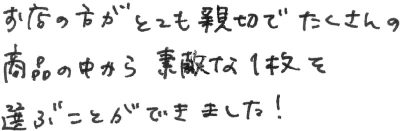 お店の方がとても親切でたくさんの
商品の中から素敵な1枚を
選ぶことができました!